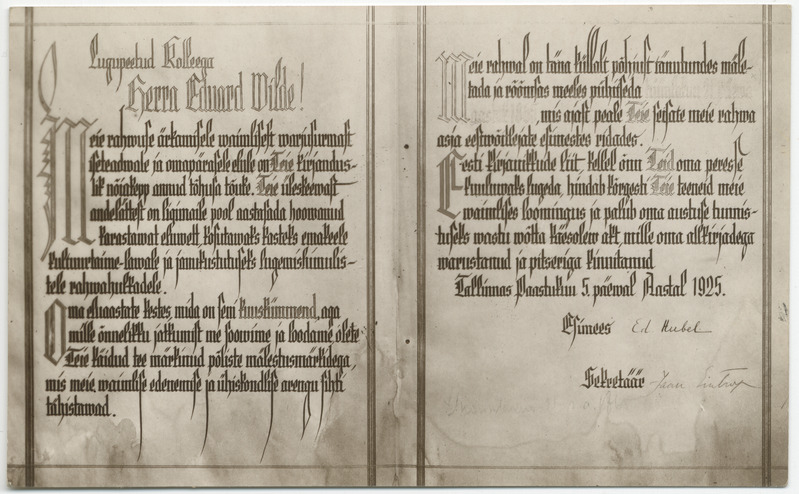 Lugupeetud Kolleega
Herra Eduard Wilde!
Meie rahwuse ärkamisele waimlisest warjusurmast
iseteadwale ja omapärasele elule on Teie kirjandus-
lik nõiakepp annud tõhusa tõuke. Teie üleskeewast
andelättest on ligimaile pool aastasada hoowanud
karastawat eluwett, kosutawaks kasteks emakeele
kultuurtaime-lawale ja janukustutuseks lugemishimulis-
tele rahwahulkadele.
Oma eluaastate kestes, mida on seni kuuskümmend, aga
mille õnnelikku jatkumist me soowime ja loodame, olete
Teie käidud tee märkinud põliste mälestusmärkidega,
mis meie waimlise edenemise ja ühiskondlise arengu sihti
tähistawad.
Meie rahwal on täna küllalt põhjust tänutundes mäle-
tada ja rõõmsas meeles pühitseda
, mis ajast peale Teie seisate meie rahwa
asja eestwõitlejate esimestes ridades.
Eesti Kirjanikkude Liit, kellel õnn Teid oma peresse
kuuluwaks lugeda, hindab kõrgesti Teie teeneid meie
waimlises loomingus ja palub oma austuse tunnis-
tuseks wastu wõtta käesolew akt, mille oma allkirjadega
warustanud ja pitseriga kinnitanud
Tallinnas Paastukuu 5. päewal Aastal 1925.
Esimees Ed Hubel
Sekretäär